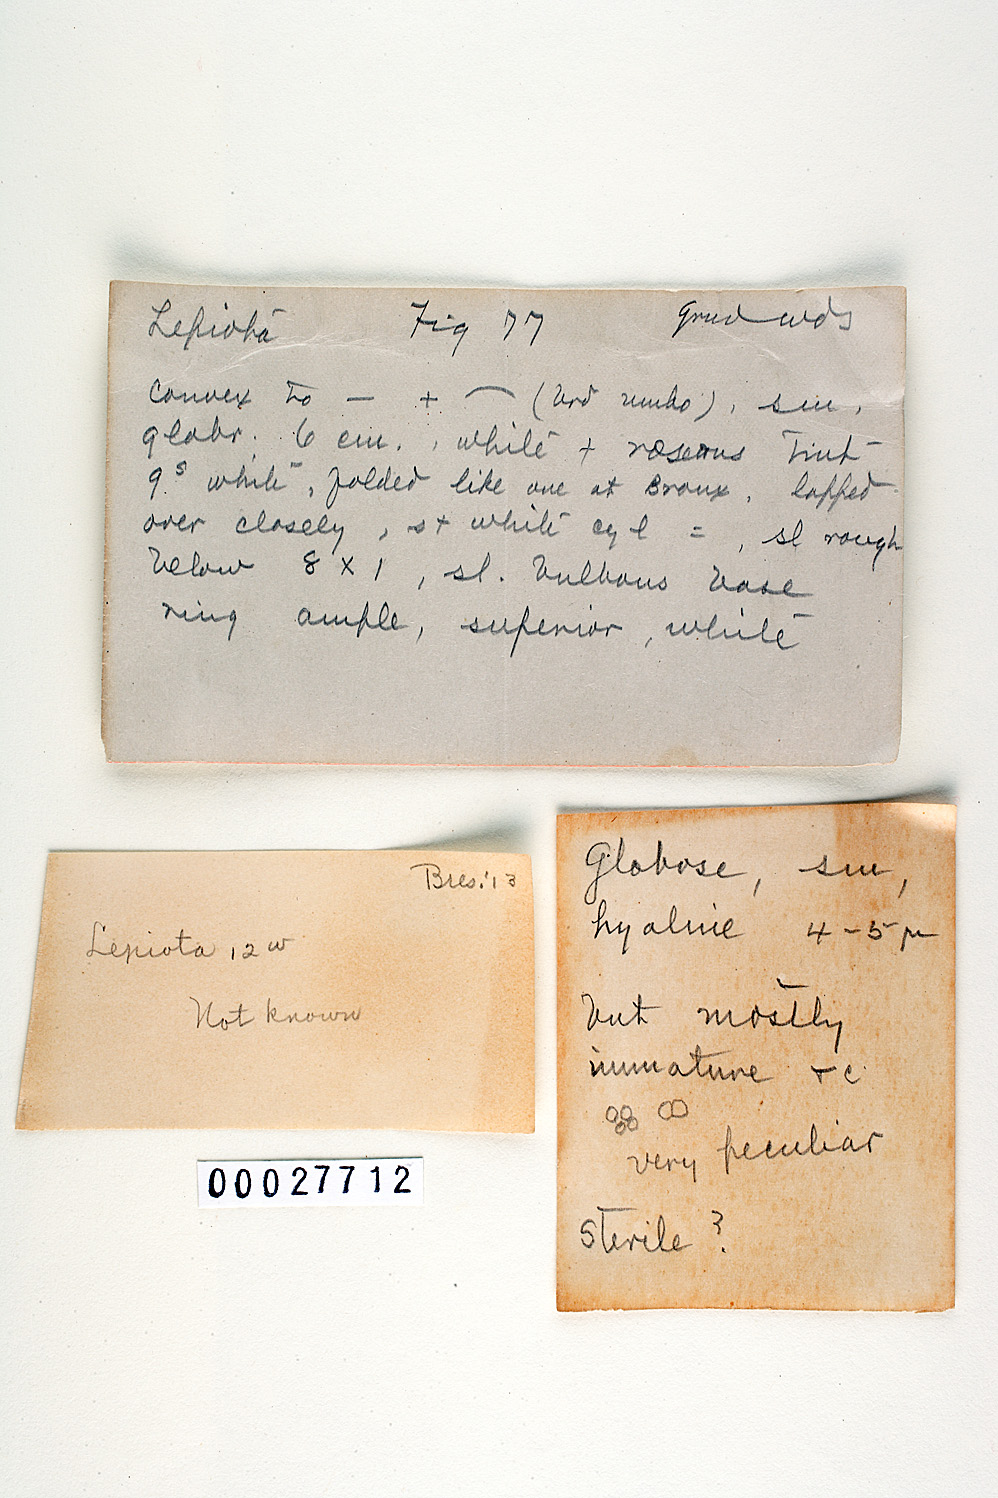 Lepiota Fig 77 Grnd wds
convex to — + ⌒ (brd umbo), sm,
glabr. 6 cm., white + roseous tint
gs white, folded like one at Bronx, lapped
over closely, st white cyl =, sl rough
below 8 x 1, sl. bulbous base
ring ample, superior, white
Bres. '13
Lepiota 12 w
Not known
00027712
Globose, sm,
hyaline 4-5 µ
but mostly
immature + c
very peculiar
Sterile ?